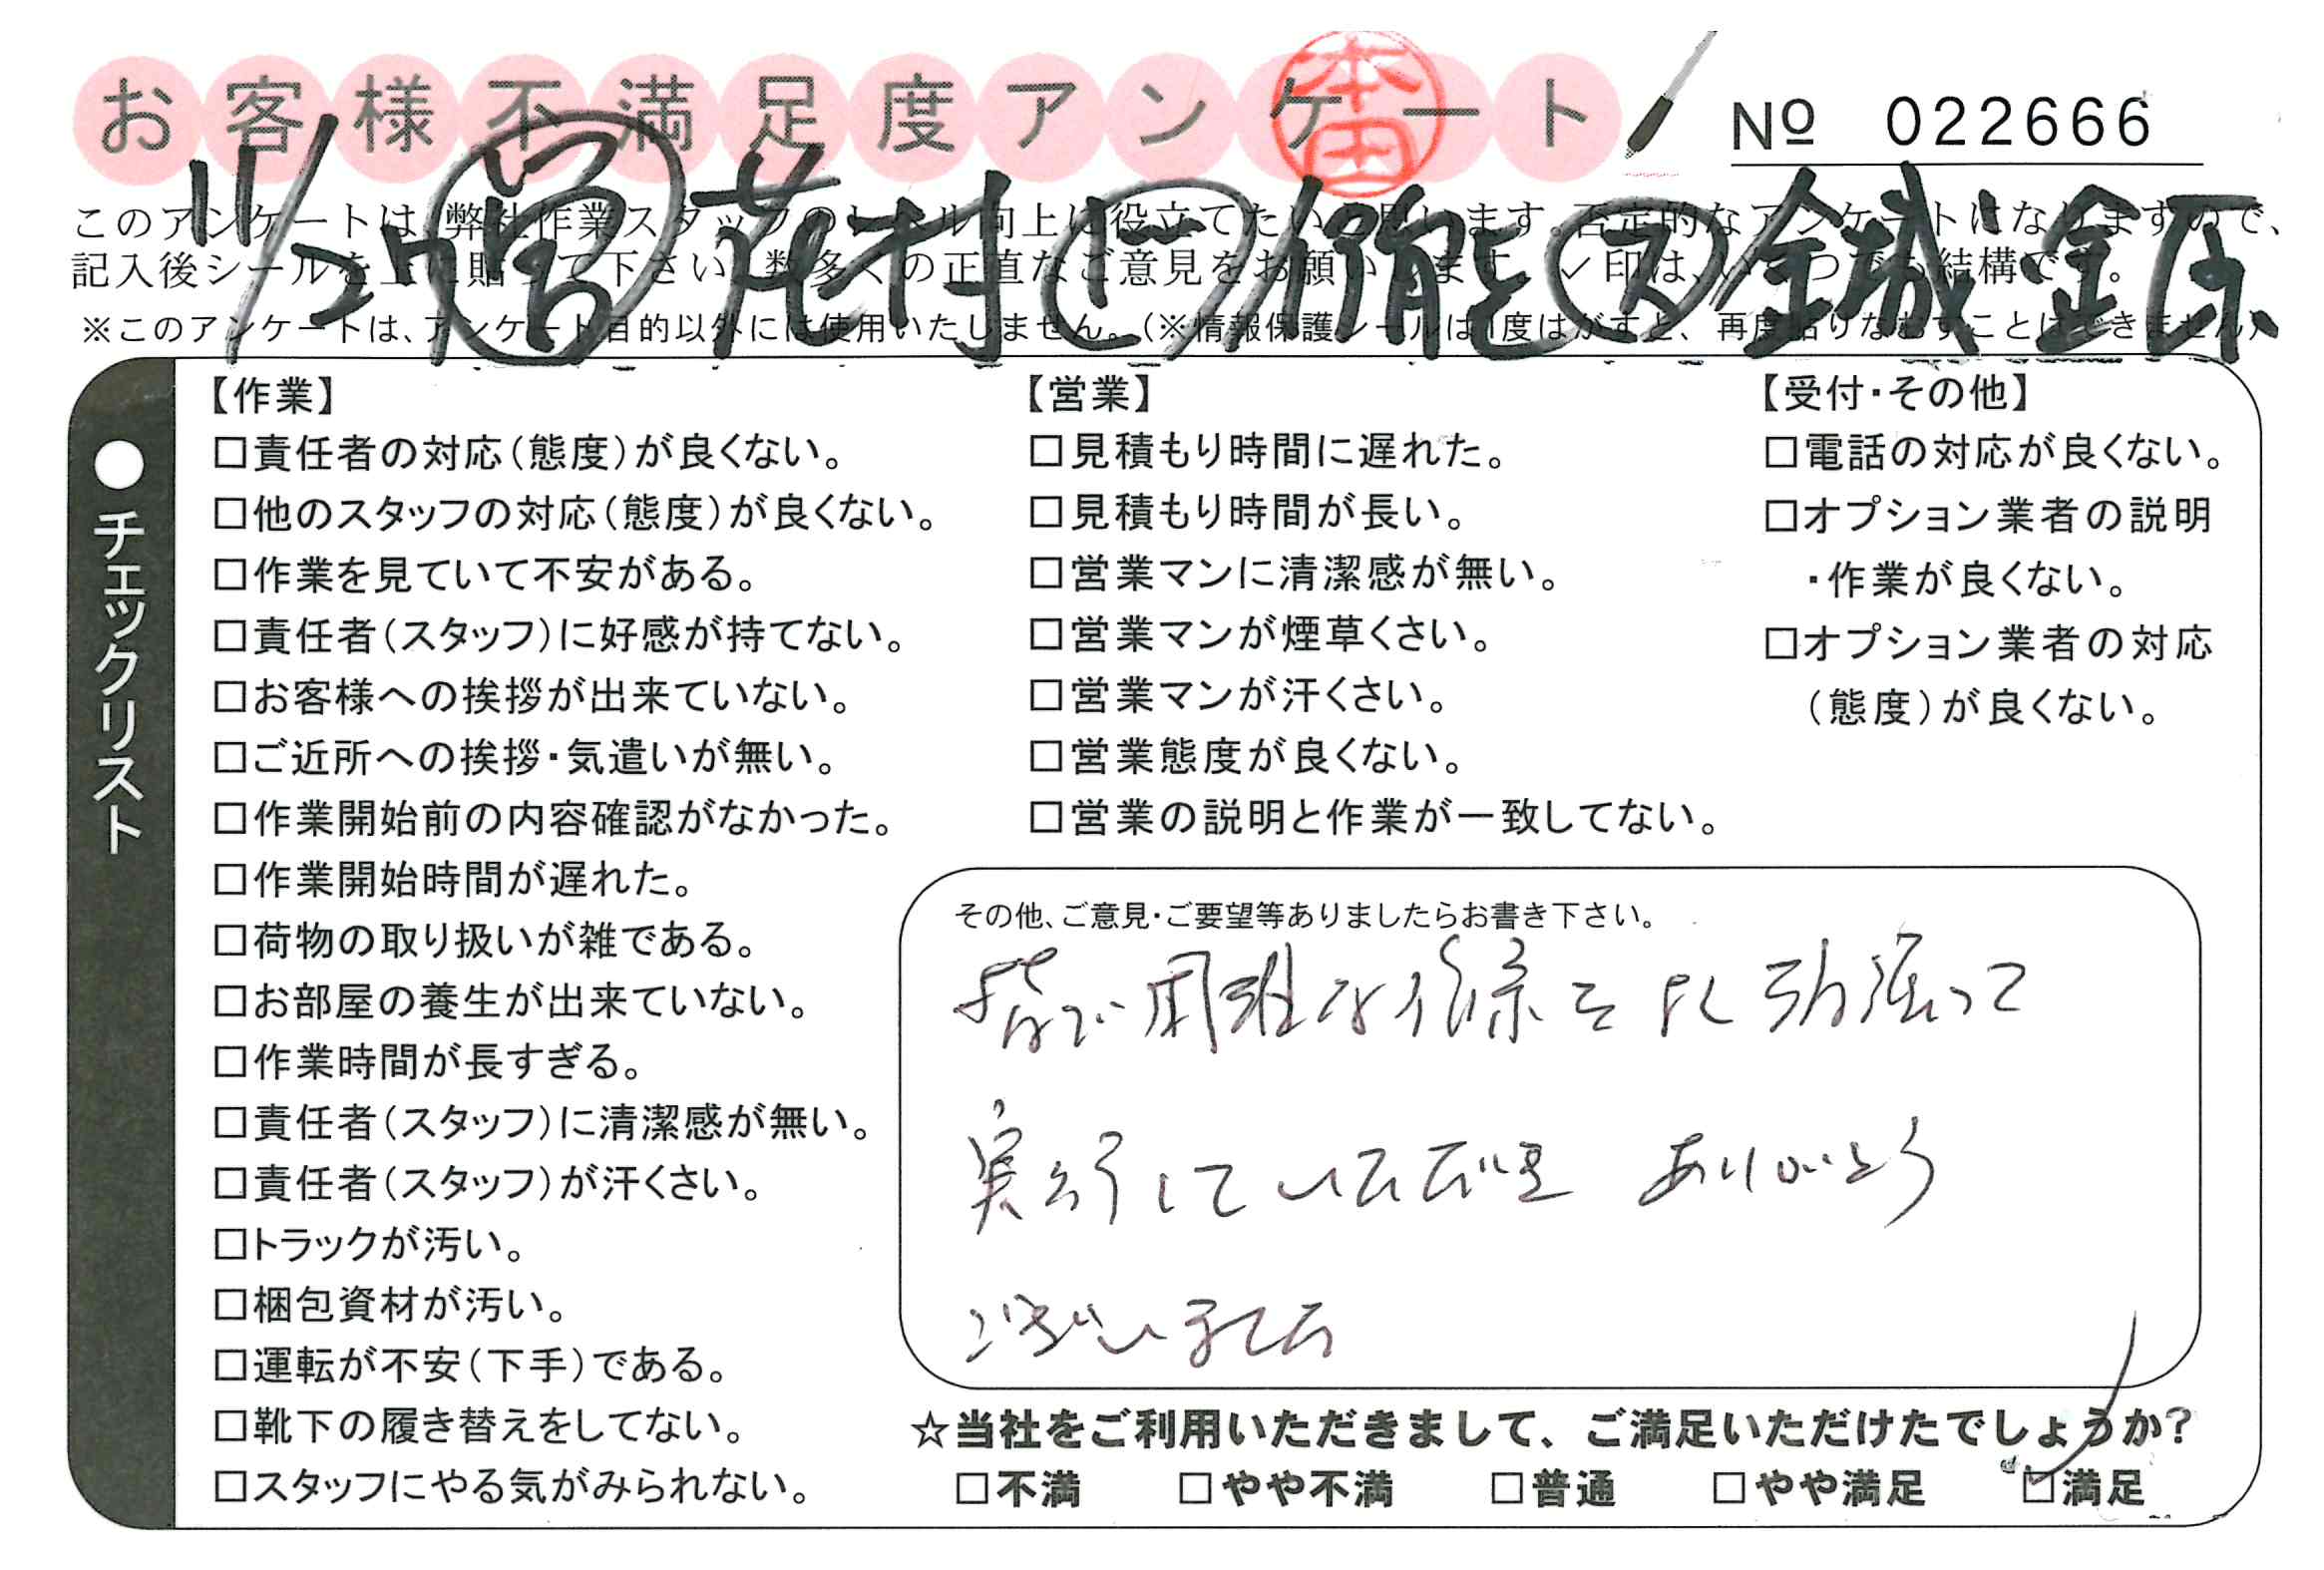 お客様不満足度アンケート
本田
№ 022666
11/27 営 花村 ビ 徹能 ス 金城 金原
このアンケートは、弊社作業スタッフのレベル向上に役立てたいと思います。否定的なアンケートにはなりますので、
記入後シールを上に貼って下さい。数多くの正直なご意見をお願いします。✓印は、いくつでも結構です。
※このアンケートは、アンケート目的以外には使用いたしません。(※情報保護シールは1度はがすと、再度貼りなおすことはできません)
●チェックリスト
【作業】
□責任者の対応(態度)が良くない。
□他のスタッフの対応(態度)が良くない。
□作業を見ていて不安がある。
□責任者(スタッフ)に好感が持てない。
□お客様への挨拶が出来ていない。
□ご近所への挨拶・気遣いが無い。
□作業開始前の内容確認がなかった。
□作業開始時間が遅れた。
□荷物の取り扱いが雑である。
□お部屋の養生が出来ていない。
□作業時間が長すぎる。
□責任者(スタッフ)に清潔感が無い。
□責任者(スタッフ)が汗くさい。
□トラックが汚い。
□梱包資材が汚い。
□運転が不安(下手)である。
□靴下の履き替えをしてない。
□スタッフにやる気がみられない。
【営業】
□見積もり時間に遅れた。
□見積もり時間が長い。
□営業マンに清潔感が無い。
□営業マンが煙草くさい。
□営業マンが汗くさい。
□営業態度が良くない。
□営業の説明と作業が一致してない。
【受付・その他】
□電話の対応が良くない。
□オプション業者の説明
・作業が良くない。
□オプション業者の対応
(態度)が良くない。
その他、ご意見・ご要望等ありましたらお書き下さい。
皆で困難な依系をよく頑張って
実行していただき ありがとう
ございました
☆当社をご利用いただきまして、ご満足いただけたでしょうか?
□不満 □やや不満 □普通 □やや満足 ☑満足